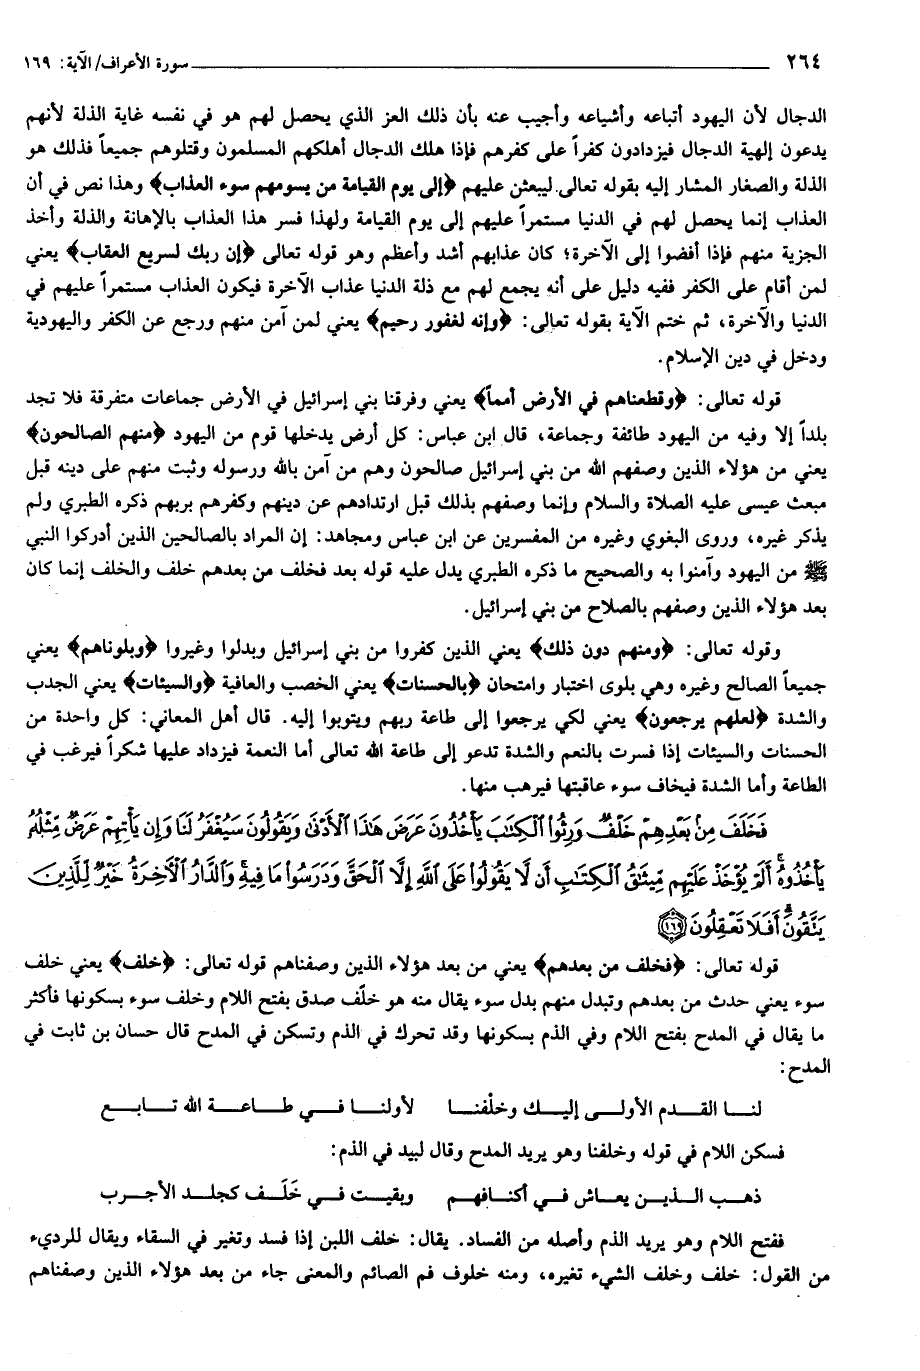 ٢٦٤ ــــــــــــــــــــ سورة الأعراف/ الآية: ١٦٩
الدجال لأن اليهود أتباعه وأشياعه وأجيب عنه بأن ذلك العز الذي يحصل لهم هو في نفسه غاية الذلة لأنهم
يدعون إلهية الدجال فيزدادون كفراً على كفرهم فإذا هلك الدجال أهلكهم المسلمون وقتلوهم جميعاً فذلك هو
الذلة والصغار المشار إليه بقوله تعالى ليبعثن عليهم ﴿إلى يوم القيامة من يسومهم سوء العذاب﴾ وهذا نص في أن
العذاب إنما يحصل لهم في الدنيا مستمراً عليهم إلى يوم القيامة ولهذا فسر هذا العذاب بالإهانة والذلة وأخذ
الجزية منهم فإذا أفضوا إلى الآخرة؛ كان عذابهم أشد وأعظم وهو قوله تعالى ﴿إن ربك لسريع العقاب﴾ يعني
لمن أقام على الكفر ففيه دليل على أنه يجمع لهم مع ذلة الدنيا عذاب الآخرة فيكون العذاب مستمراً عليهم في
الدنيا والآخرة، ثم ختم الآية بقوله تعالى: ﴿وإنه لغفور رحيم﴾ يعني لمن آمن منهم ورجع عن الكفر واليهودية
ودخل في دين الإسلام.
قوله تعالى: ﴿وقطعناهم في الأرض أمماً﴾ يعني وفرقنا بني إسرائيل في الأرض جماعات متفرقة فلا تجد
بلداً إلا وفيه من اليهود طائفة وجماعة، قال ابن عباس: كل أرض يدخلها قوم من اليهود ﴿منهم الصالحون﴾
يعني من هؤلاء الذين وصفهم الله من بني إسرائيل صالحون وهم من آمن بالله ورسوله وثبت منهم على دينه قبل
مبعث عيسى عليه الصلاة والسلام وإنما وصفهم بذلك قبل ارتدادهم عن دينهم وكفرهم بربهم ذكره الطبري ولم
يذكر غيره، وروى البغوي وغيره من المفسرين عن ابن عباس ومجاهد: إن المراد بالصالحين الذين أدركوا النبي
ﷺ من اليهود وآمنوا به والصحيح ما ذكره الطبري يدل عليه قوله بعد فخلف من بعدهم خلف والخلف إنما كان
بعد هؤلاء الذين وصفهم بالصلاح من بني إسرائيل.
وقوله تعالى: ﴿ومنهم دون ذلك﴾ يعني الذين كفروا من بني إسرائيل وبدلوا وغيروا ﴿وبلوناهم﴾ يعني
جميعاً الصالح وغيره وهي بلوى اختبار وامتحان ﴿بالحسنات﴾ يعني الخصب والعافية ﴿والسيئات﴾ يعني الجدب
والشدة ﴿لعلهم يرجعون﴾ يعني لكي يرجعوا إلى طاعة ربهم ويتوبوا إليه. قال أهل المعاني: كل واحدة من
الحسنات والسيئات إذا فسرت بالنعم والشدة تدعو إلى طاعة الله تعالى أما النعمة فيزداد عليها شكراً فيرغب في
الطاعة وأما الشدة فيخاف سوء عاقبتها فيرهب منها.
فَخَلَفَ مِنۢ بَعْدِهِمْ خَلْفٌ وَرِثُوا۟ ٱلْكِتَٰبَ يَأْخُذُونَ عَرَضَ هَٰذَا ٱلْأَدْنَىٰ وَيَقُولُونَ سَيُغْفَرُ لَنَا وَإِن يَأْتِهِمْ عَرَضٌ مِّثْلُهُۥ
يَأْخُذُوهُ ۚ أَلَمْ يُؤْخَذْ عَلَيْهِم مِّيثَٰقُ ٱلْكِتَٰبِ أَن لَّا يَقُولُوا۟ عَلَى ٱللَّهِ إِلَّا ٱلْحَقَّ وَدَرَسُوا۟ مَا فِيهِ ۗ وَٱلدَّارُ ٱلْءَاخِرَةُ خَيْرٌ لِّلَّذِينَ
يَتَّقُونَ ۗ أَفَلَا تَعْقِلُونَ ﴿١٦٩﴾
قوله تعالى: ﴿فخلف من بعدهم﴾ يعني من بعد هؤلاء الذين وصفناهم قوله تعالى: ﴿خلف﴾ يعني خلف
سوء يعني حدث من بعدهم وتبدل منهم بدل سوء يقال منه هو خلَف صدق بفتح اللام وخلف سوء بسكونها فأكثر
ما يقال في المدح بفتح اللام وفي الذم بسكونها وقد تحرك في الذم وتسكن في المدح قال حسان بن ثابت في
المدح:
لنا القدم الأولى إليك وخلْفنا لأولنا في طاعة الله تابع
فسكن اللام في قوله وخلفنا وهو يريد المدح وقال لبيد في الذم:
ذهب الذين يعاش في أكنافهم وبقيت في خَلَف كجلد الأجرب
ففتح اللام وهو يريد الذم وأصله من الفساد. يقال: خلف اللبن إذا فسد وتغير في السقاء ويقال للرديء
من القول: خلف وخلف الشيء تغيره، ومنه خلوف فم الصائم والمعنى جاء من بعد هؤلاء الذين وصفناهم